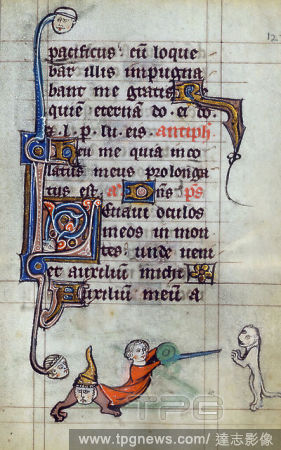 12
pacificus cū loque
bar illis impugna
bant me gratis
quiē eternā do. ei do
t. l. p. lu. eis. antiph
eu me quia inco
latus meus prolonga
tus est. a ns ps
Leuaui oculos
meos in mon
tes. unde ueni
et auxilium michi
Auxilium meū a
TPG
www.tpgnews.com / 達志影像